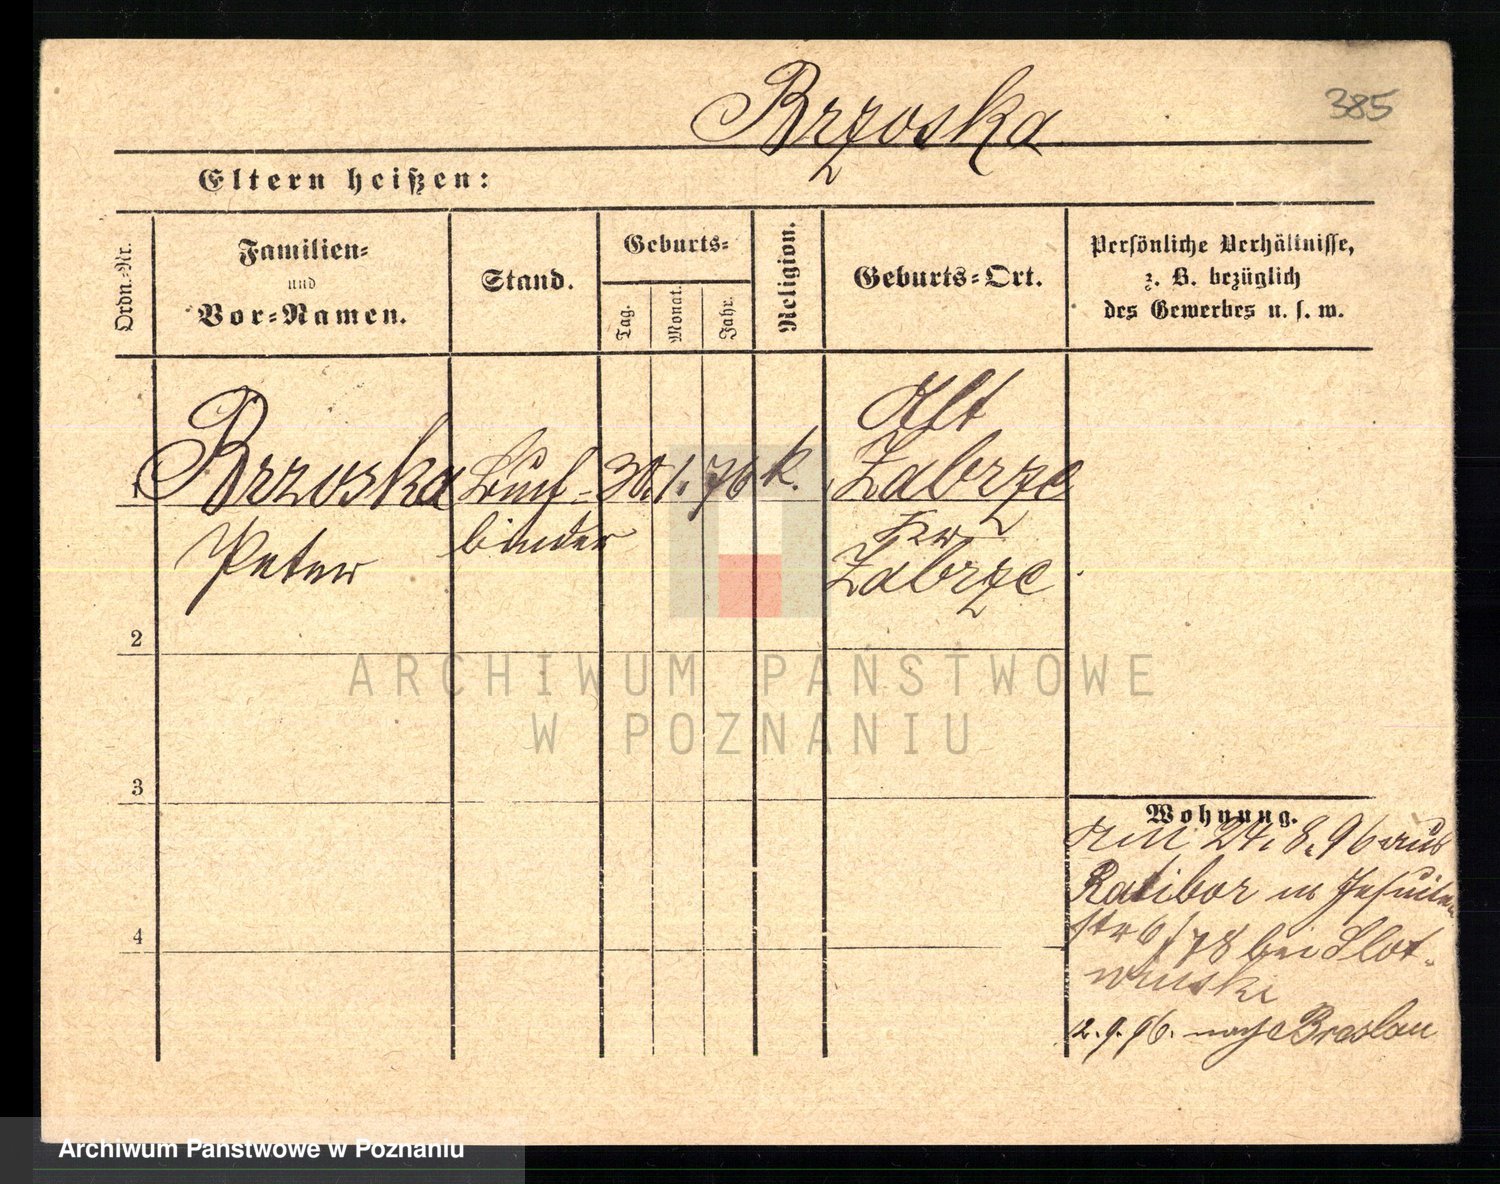 Brzoska
385
Eltern heißen:
Ordn.-Nr.
Familien-
und
Vor-Namen.
Stand.
Geburts-
Tag.
Monat.
Jahr.
Religion.
Geburts-Ort.
Persönliche Verhältnisse,
z. B. bezüglich
des Gewerbes u. s. w.
1
Brzoska
Peter
Buch-
binder
30. 1. 76
k.
Alt
Zabrze
Kr
Zabrze.
2
3
4
Wohnung.
Am 24. 8. 96 aus
Ratibor in Jesuiten
str 6/78 bei Slot-
winski
12. 9. 96. nach Breslau
ARCHIWUM PAŃSTWOWE
W POZNANIU
Archiwum Państwowe w Poznaniu